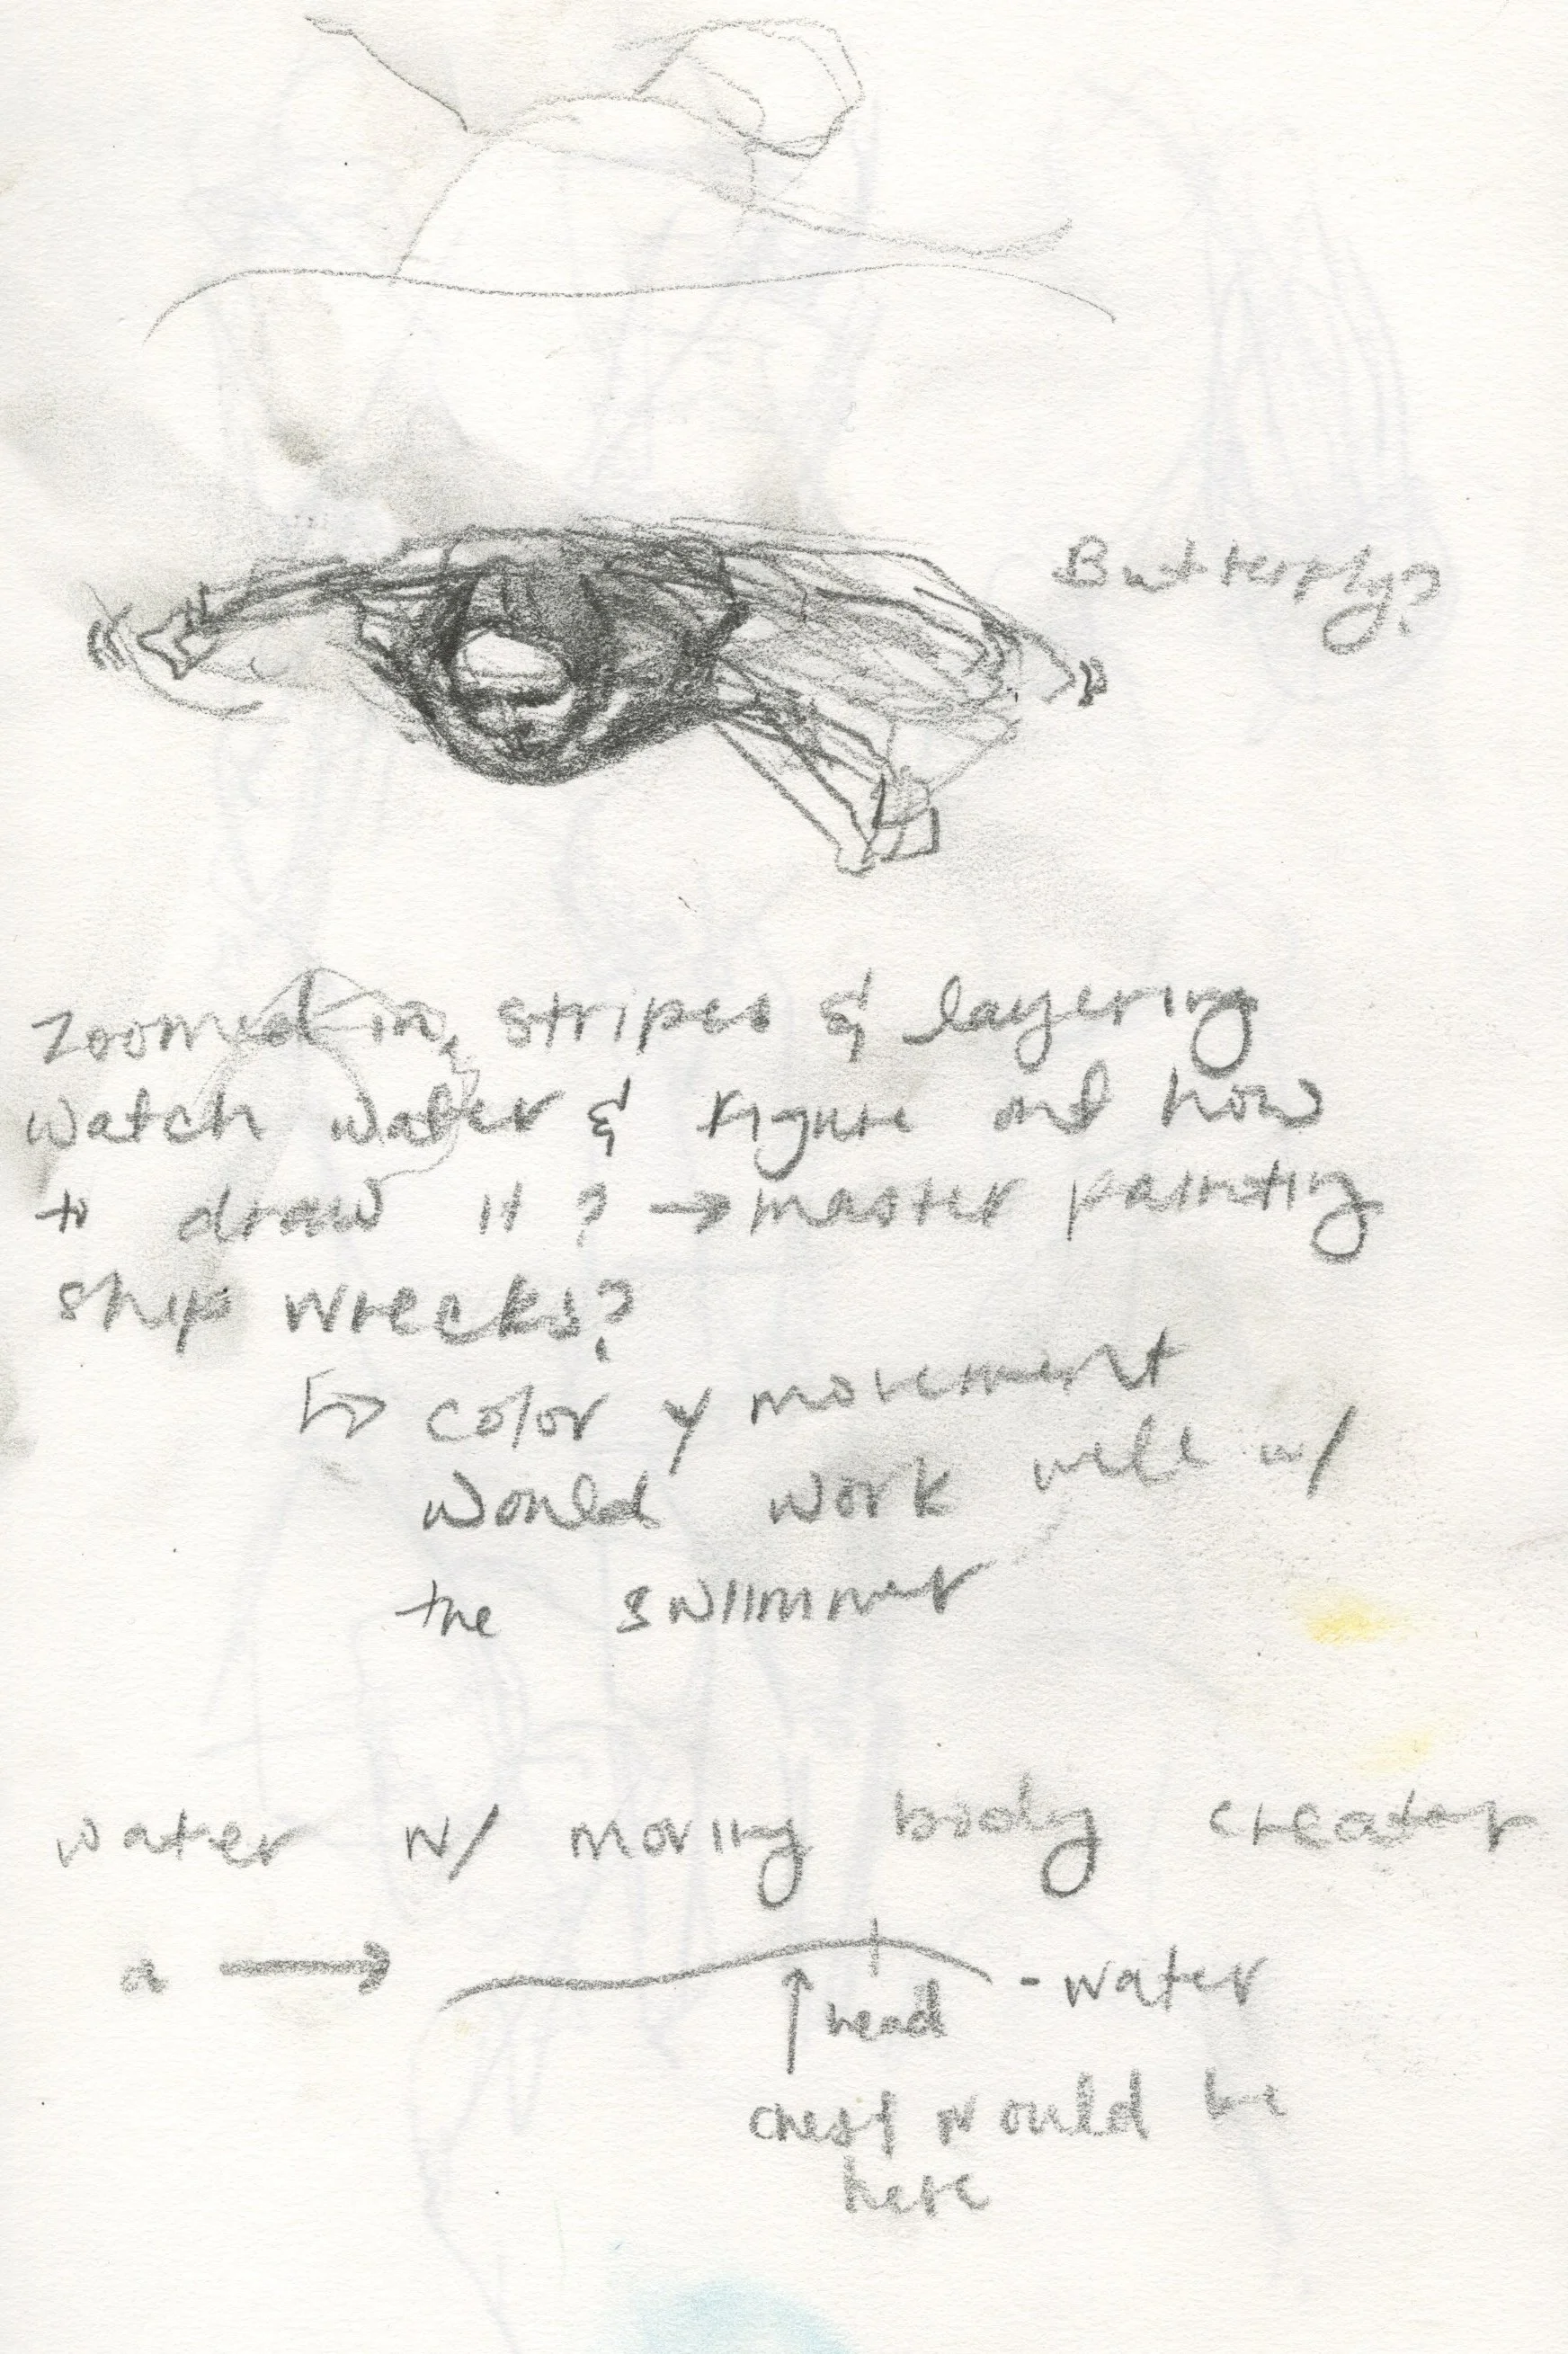 Butterfly?
Zoomed in, stripes & layering
watch water & figure out how
to draw it? → master painting
ship wrecks?
↳ color y movement
would work well w/
the swimmer
water w/ moving body creates
a → - water
head
chest would be
here